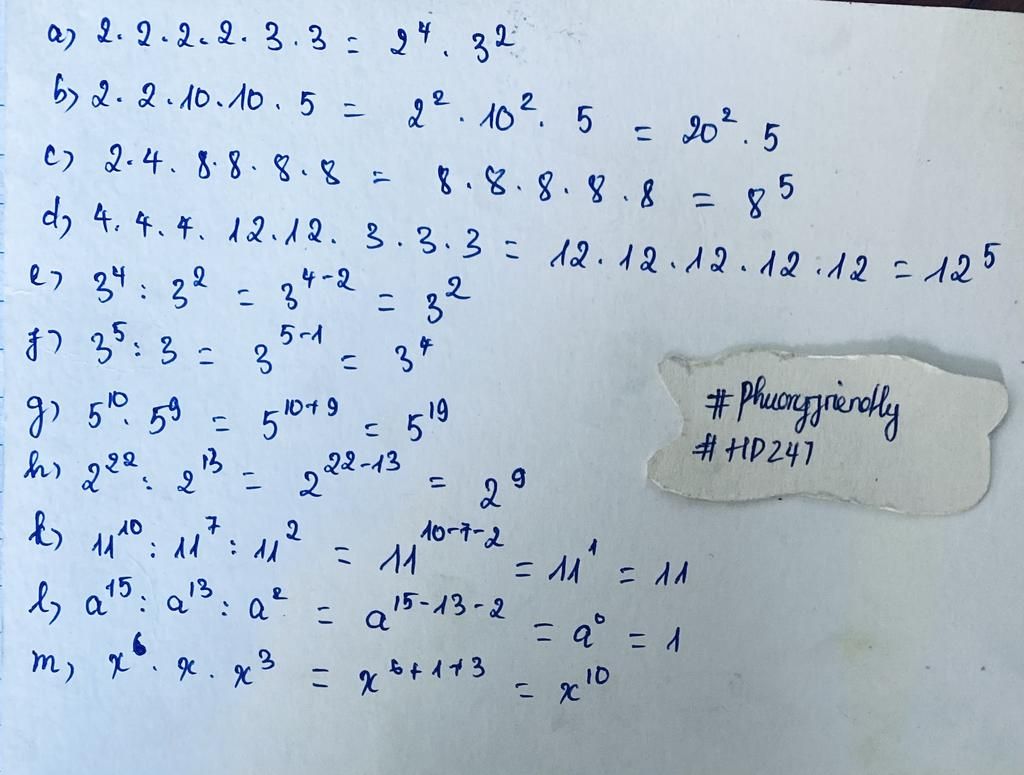 a) 2.2.2.2.3.3 = 2⁴.3²
b) 2.2.10.10.5 = 2².10².5 = 20².5
c) 2.4.8.8.8.8 = 8.8.8.8.8 = 8⁵
d) 4.4.4.12.12.3.3.3 = 12.12.12.12.12 = 12⁵
e) 3⁴ : 3² = 3⁴⁻² = 3²
f) 3⁵ : 3 = 3⁵⁻¹ = 3⁴
g) 5¹⁰.5⁹ = 5¹⁰⁺⁹ = 5¹⁹
h) 2²² : 2¹³ = 2²²⁻¹³ = 2⁹
k) 11¹⁰ : 11⁷ : 11² = 11¹⁰⁻⁷⁻² = 11¹ = 11
l) a¹⁵ : a¹³ : a² = a¹⁵⁻¹³⁻² = a⁰ = 1
m) x⁶.x.x³ = x⁶⁺¹⁺³ = x¹⁰
#Phuongfriendly
#HD247